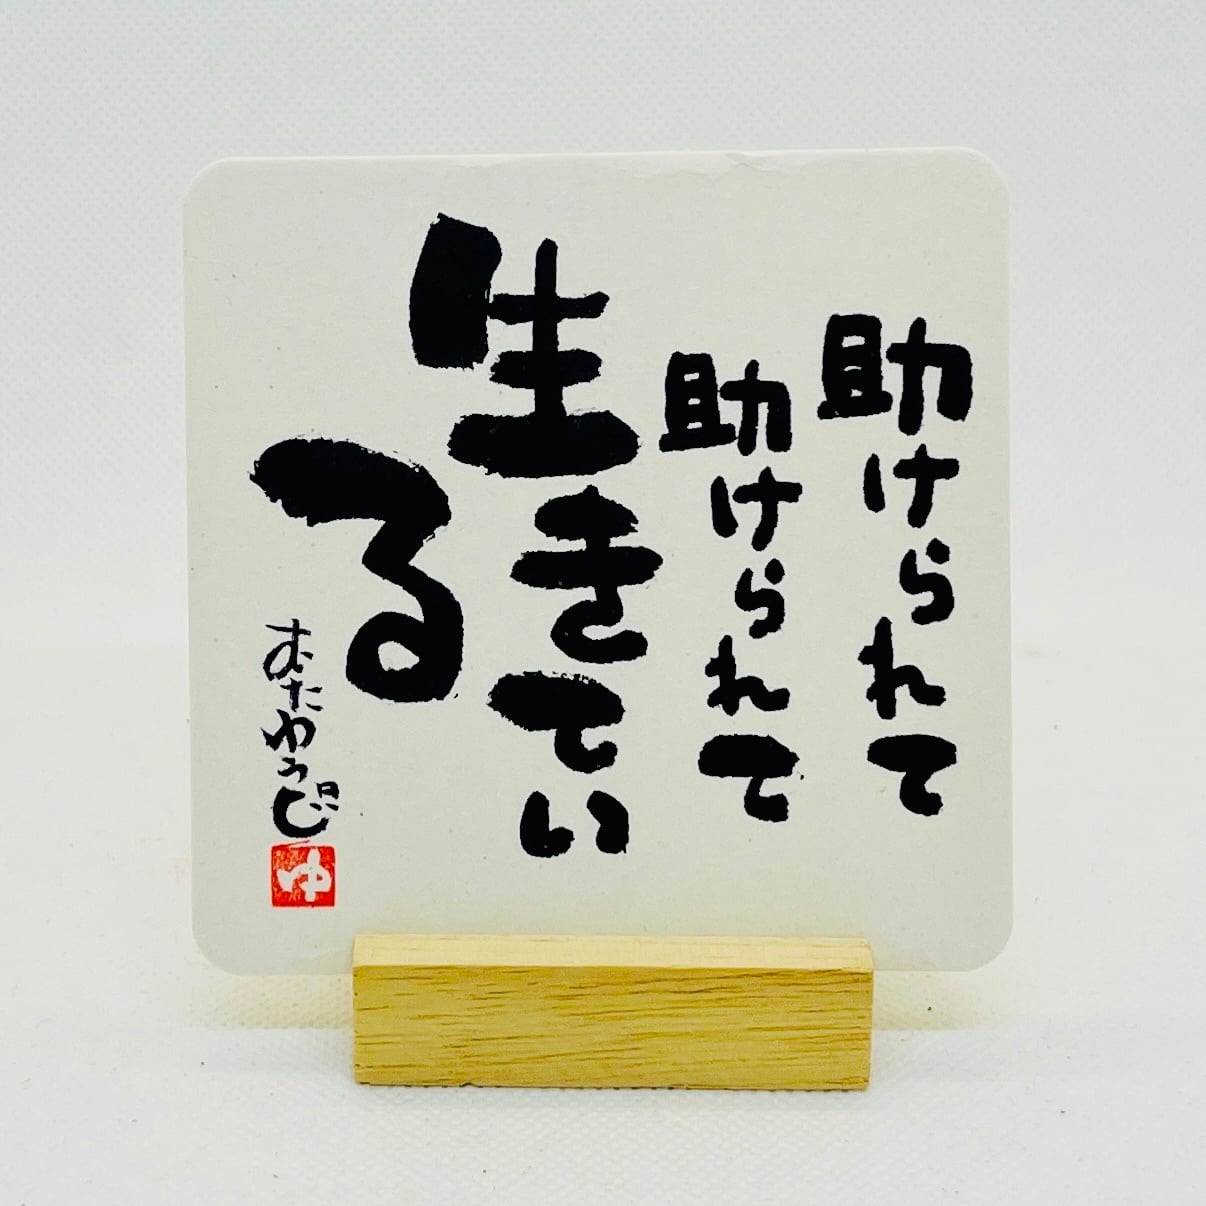 助けられて
助けられて
生きてい
る
むたゆうじ
ゆ